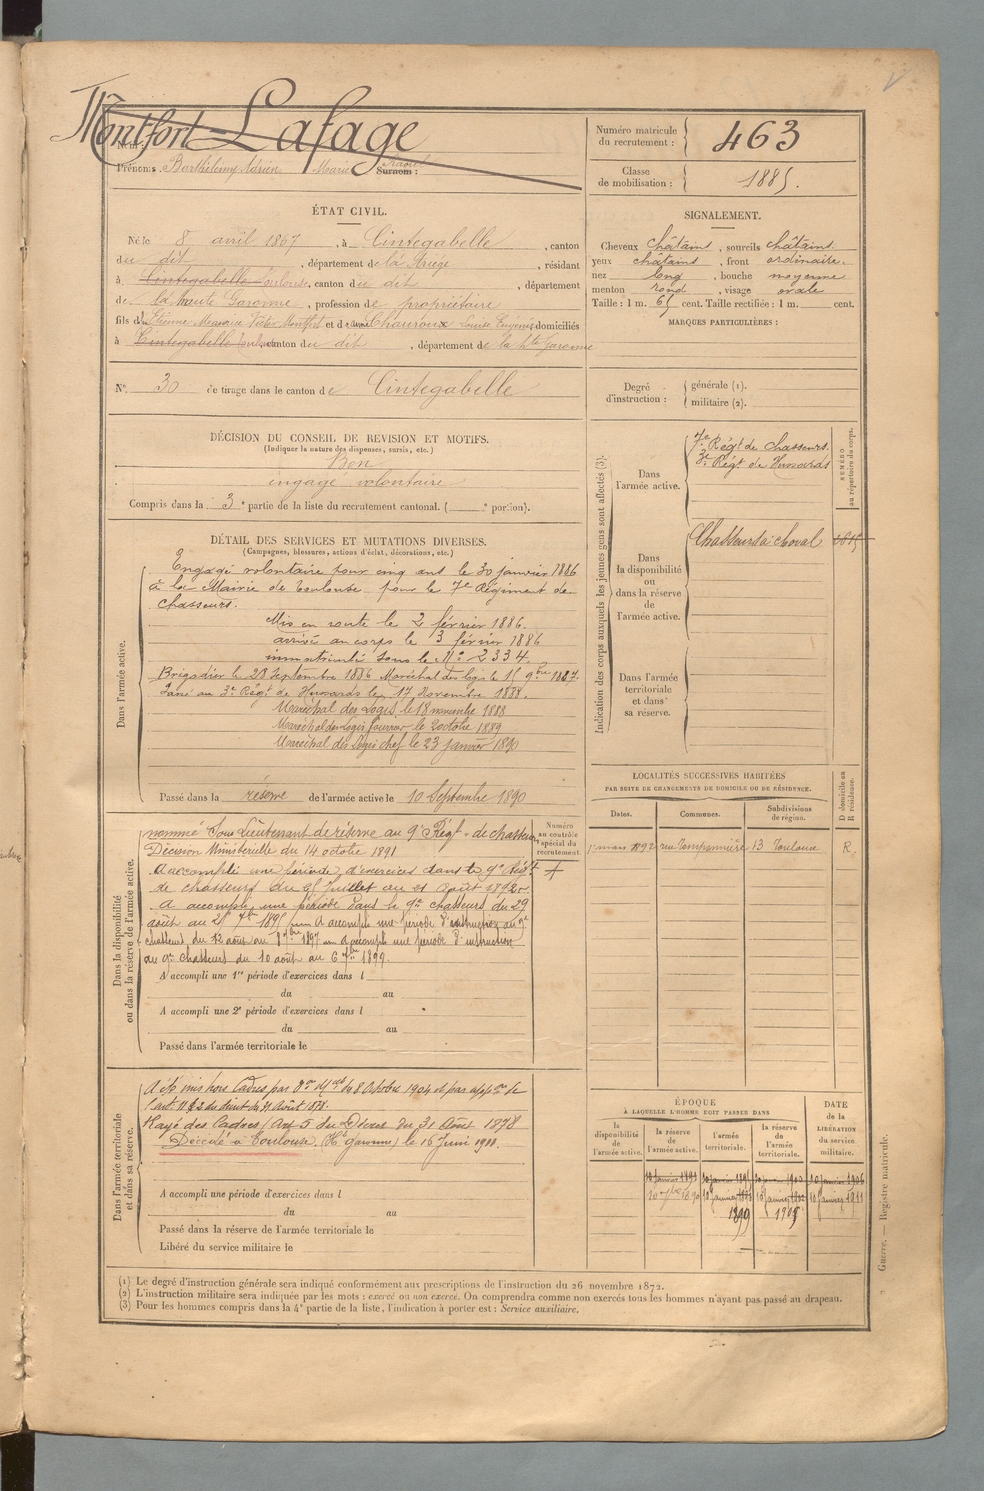 Montfort-Lafage
Nom :
Prénoms : Barthélemy Adrien Marie Raoul Surnom :
Numéro matricule du recrutement : 463
Classe de mobilisation : 1885.
ÉTAT CIVIL.
Né le 8 avril 1867, à Cintegabelle, canton
du dit, département de la Ariège, résidant
à Cintegabelle Toulouse, canton du dit, département
de la haute Garonne, profession de propriétaire
fils d'Etienne Maurice Victor Montfort et de Chauroux Louise Eugénie domiciliés
à Cintegabelle canton du dit, département de la Hte Garonne
N° 30 de tirage dans le canton de Cintegabelle
SIGNALEMENT.
Cheveux châtains, sourcils châtains
yeux châtains, front ordinaire.
nez long, bouche moyenne
menton rond, visage ovale
Taille : 1 m. 65 cent. Taille rectifiée : 1 m. cent.
MARQUES PARTICULIÈRES :
Degré d'instruction : générale (1).
militaire (2).
DÉCISION DU CONSEIL DE REVISION ET MOTIFS.
(Indiquer la nature des dispenses, sursis, etc.)
Bon
engagé volontaire
Compris dans la 3e partie de la liste du recrutement cantonal. ( e portion).
DÉTAIL DES SERVICES ET MUTATIONS DIVERSES.
(Campagnes, blessures, actions d'éclat, décorations, etc.)
Dans l'armée active.
Engagé volontaire pour cinq ans le 30 janvier 1886
à la Mairie de Toulouse pour le 7e Régiment de
chasseurs.
Mis en route le 2 février 1886.
arrivé au corps le 3 février 1886
immatriculé sous le N° 2334.
Brigadier le 28 Septembre 1886 Maréchal des logis le 15 9bre 1887.
Passé au 3e Régt de Hussards le 17 Novembre 1888.
Maréchal des Logis le 18 novembre 1888
Maréchal des Logis fourrier le 2 octobre 1889
Maréchal des Logis chef le 23 janvier 1890
Passé dans la réserve de l'armée active le 10 Septembre 1890
Indication des corps auxquels les jeunes gens sont affectés (3).
NUMÉRO au répertoire du corps.
Dans l'armée active.
7e Régt de chasseurs.
3e Régt de Hussards
Dans la disponibilité ou dans la réserve de l'armée active.
Chasseurs à cheval
Dans l'armée territoriale et dans sa réserve.
LOCALITÉS SUCCESSIVES HABITÉES
PAR SUITE DE CHANGEMENTS DE DOMICILE OU DE RÉSIDENCE.
D domicile ou R résidence.
Dates. Communes. Subdivisions de région.
1er mars 1892 rue Pomponnière 13 Toulouse R.
Dans la disponibilité ou dans la réserve de l'armée active.
Numéro au contrôle spécial du recrutement.
nommé Sous Lieutenant de réserve au 9e Régt de chasseurs
Décision Ministérielle du 14 octobre 1891
A accompli une période d'exercices dans le 9e Régt
de chasseurs du 25 Juillet au 21 Août 1892.
A accompli une période dans le 9e chasseurs du 29
août au 25 7bre 1895 A accompli une période d'instruction au 9e
chasseurs du 12 août au 8 7bre 1897 A accompli une période d'instruction
au 9e chasseurs du 10 août au 6 7bre 1899.
A accompli une 1re période d'exercices dans l
du au
A accompli une 2e période d'exercices dans l
du au
Passé dans l'armée territoriale le
Dans l'armée territoriale et dans sa réserve.
A été mis hors Cadres par Don Mlle du 8 Octobre 1904 et par appon de
l'art. 11 § 2 du décret du 31 Août 1878.
Rayé des Cadres (Art 5 du Décret du 31 Août 1878
Décédé à Toulouse (Hte Garonne) le 16 Juin 1908.
A accompli une période d'exercices dans l
du au
Passé dans la réserve de l'armée territoriale le
Libéré du service militaire le
ÉPOQUE
À LAQUELLE L'HOMME DOIT PASSER DANS
la disponibilité de l'armée active.
la réserve de l'armée active.
l'armée territoriale.
la réserve de l'armée territoriale.
DATE de la LIBÉRATION du service militaire.
1899
Guerre. — Registre matricule.
(1) Le degré d'instruction générale sera indiqué conformément aux prescriptions de l'instruction du 26 novembre 1872.
(2) L'instruction militaire sera indiquée par les mots : exercé ou non exercé. On comprendra comme non exercés tous les hommes n'ayant pas passé au drapeau.
(3) Pour les hommes compris dans la 4e partie de la liste, l'indication à porter est : Service auxiliaire.